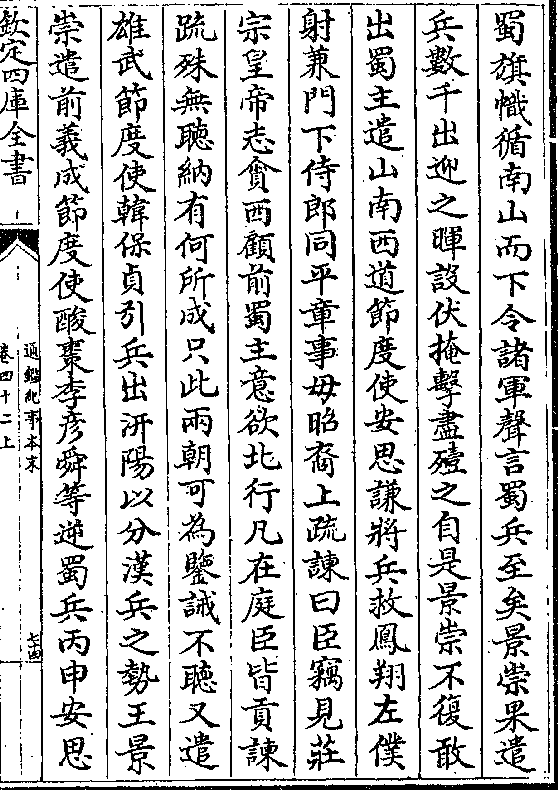 蜀旗幟循南山而下令諸軍聲言蜀兵至矣景崇果遣
兵數千出迎之暉設伏掩擊盡殪之自是景崇不復敢
出蜀主遣山南西道節度使安思謙將兵救鳳翔左僕
射兼門下侍郎同平章事毋昭裔上疏諫曰臣竊見莊
宗皇帝志貪西顧前蜀主意欲北行凡在庭臣皆貢諫
疏殊無聽納有何所成只此兩朝可為鑒誡不聽又遣
雄武節度使韓保貞引兵出汧陽以分漢兵之勢王景
崇遣前義成節度使酸棗李彦舜等逆蜀兵丙申安思
欽定四庫全書
通鑑紀事本末
卷四十二上
七十四